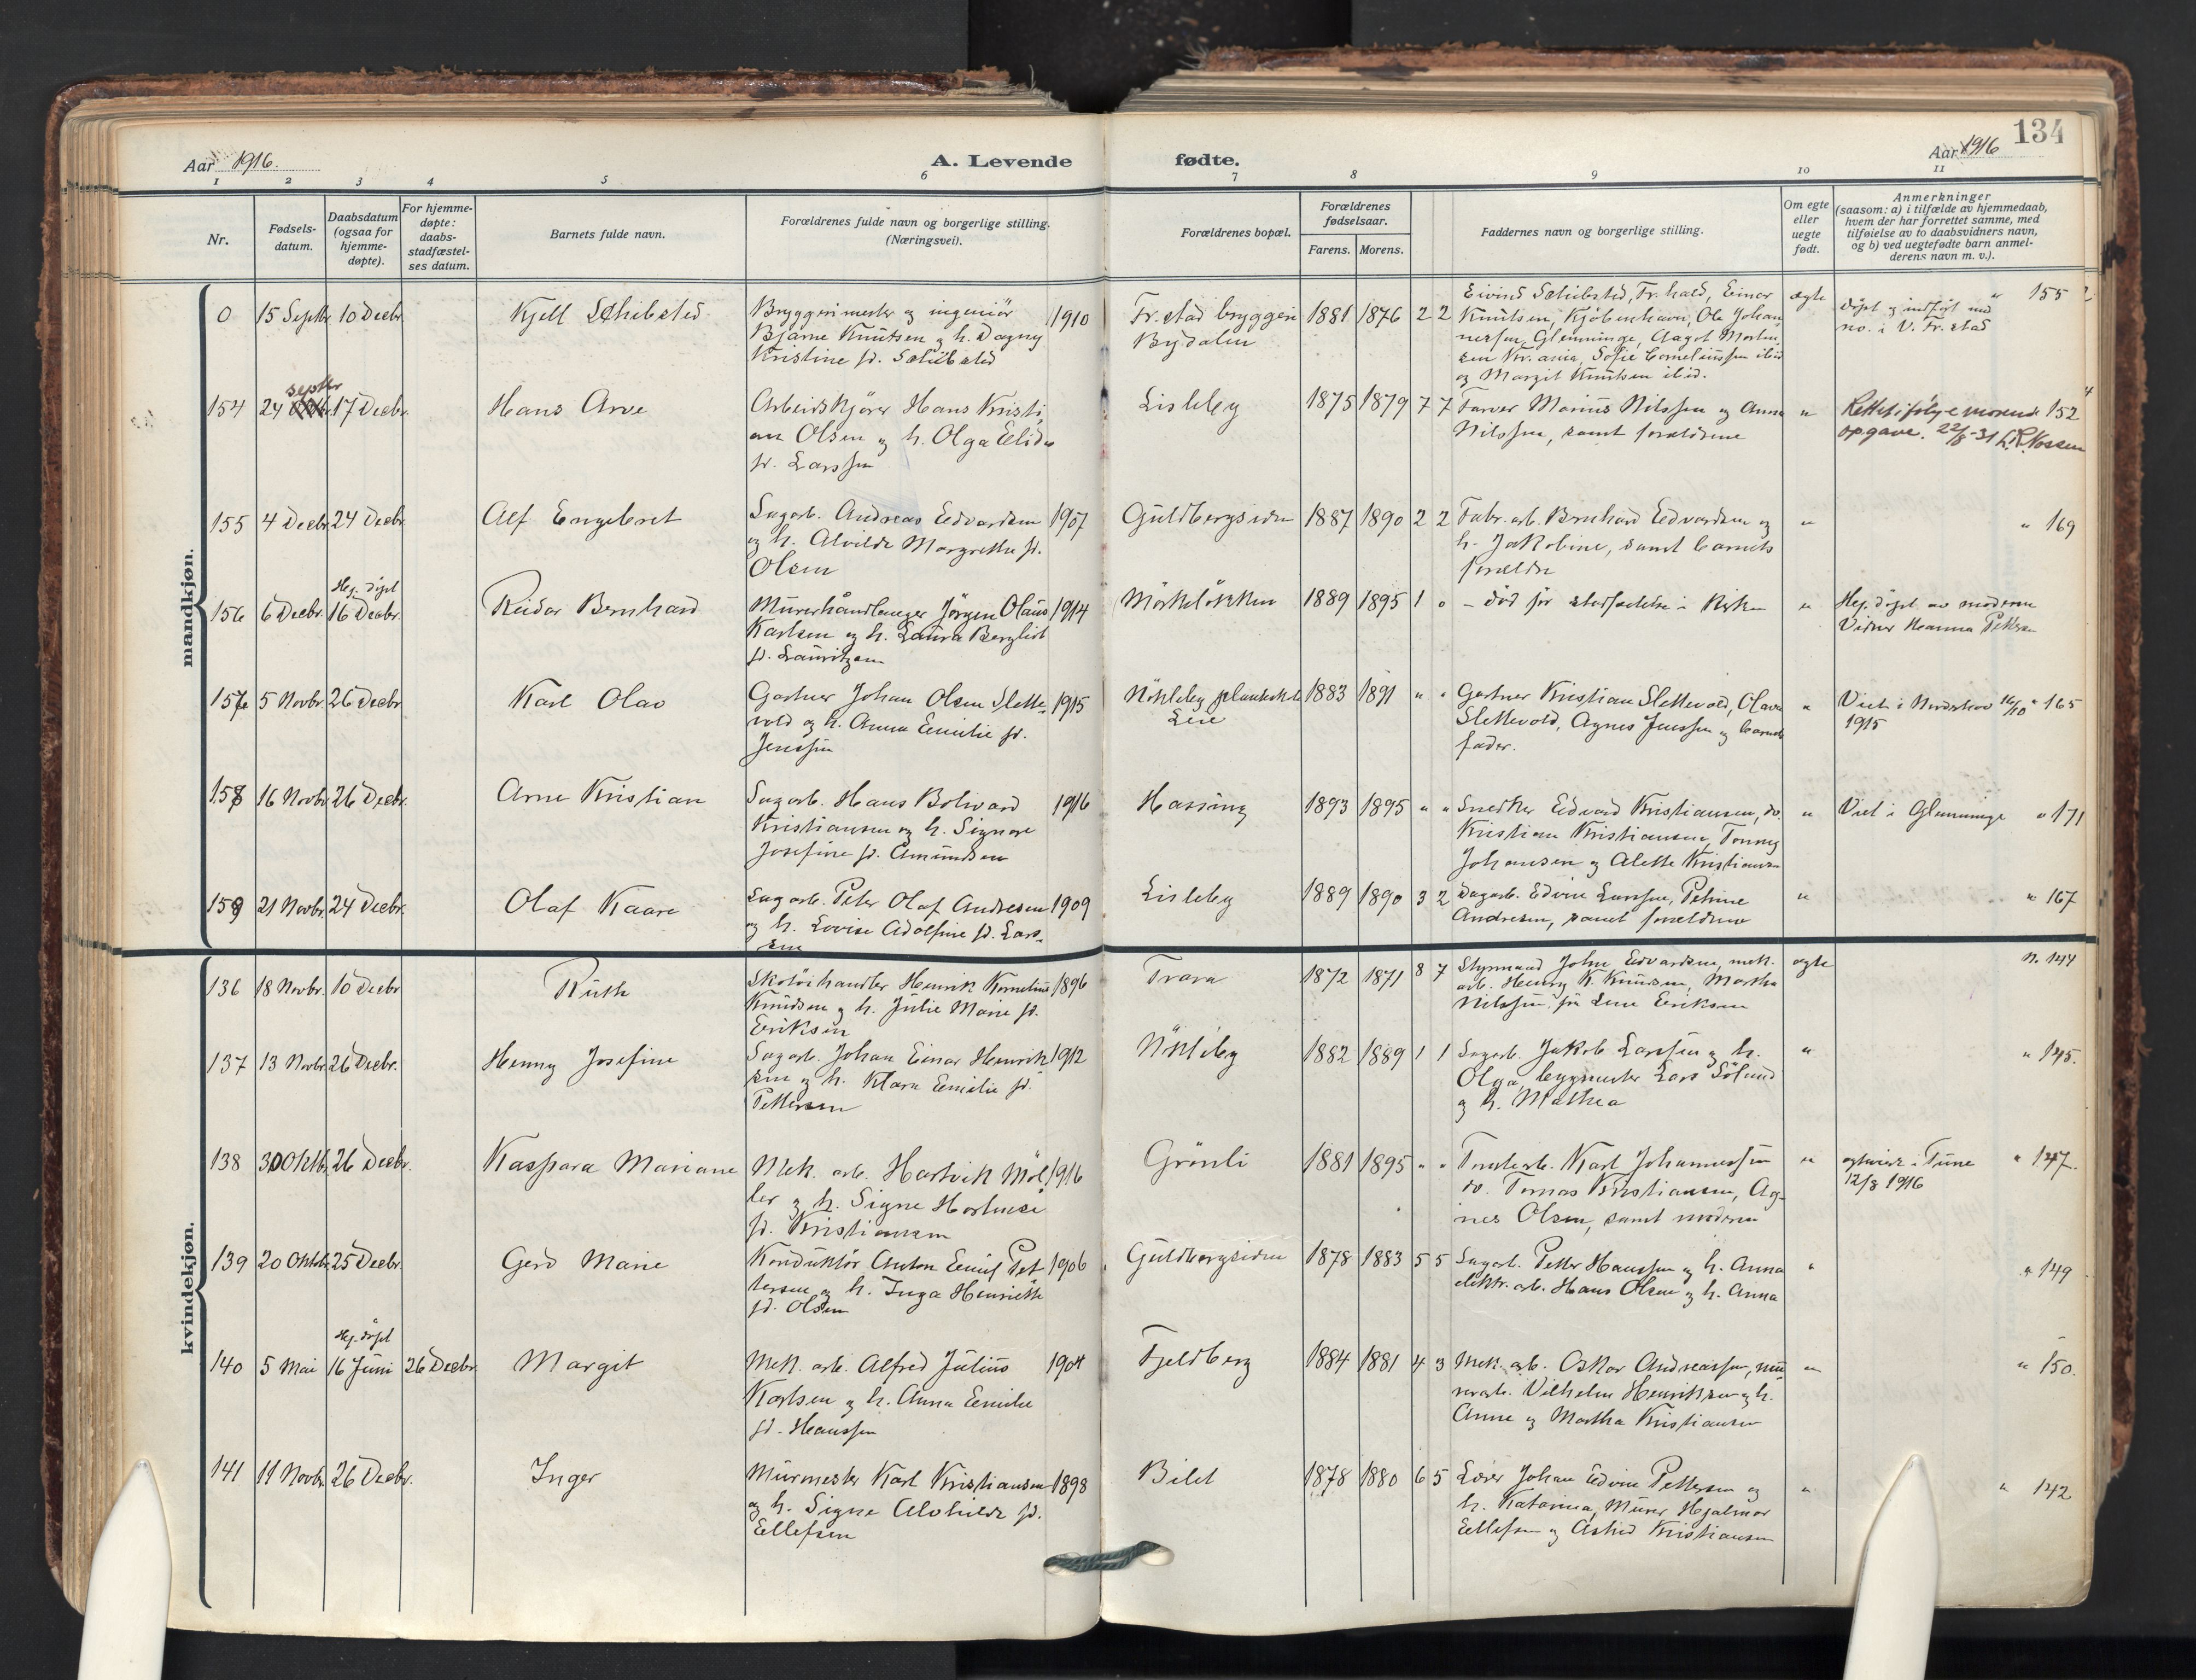 134
Aar 1916.
A. Levende
fødte.
Aar 1916
1 2 3 4 5 6 7 8 9 10 11
Nr.
Fødsels-
datum.
Daabsdatum
(ogsaa for
hjemme-
døpte).
For hjemme-
døpte:
daabs-
stadfæstel-
ses datum.
Barnets fulde navn.
Forældrenes fulde navn og borgerlige stilling.
(Næringsvei).
Forældrenes bopæl.
Forældrenes
fødselsaar.
Farens. Morens.
Faddernes navn og borgerlige stilling.
Om egte
eller
uegte
født.
Anmerkninger
(saasom: a) i tilfælde av hjemmedaab,
hvem der har forrettet samme, med
tilføielse av to daabsvidners navn,
og b) ved uegtefødte barn anmel-
derens navn m. v.).
mandkjøn.
0 15 Septbr. 10 Decbr. Kjell Schibsted
Bryggerimester og ingeniör 1910
Bjarne Knutsen og h. Dagny
Kristine fd. Schibsted
Fr.stad bryggeri 1881 1876 2 2
Bydalen
Eivind Schibsted, Fr.hald, Einar
Knutsen, Kjöbenhavn, Ole Johan-
nessen, Glemminge, Aagot Morten-
sen Kr.ania, Sofie Corneliussen ibid
og Margit Knutsen ibid.
ægte
döpt og indfört med " 155
no. i V. Fr.stad
154 24 Septbr 17 Decbr. Hans Arve
Arbeidskjører Hans Kristi-
an Olsen og h. Olga Elida
fd. Larssen
Lisleby 1875 1879 7 7
Farver Marius Nilssen og Anna
Nilssen, samt forældrene
"
Rettet ifølge morens 152
opgave. 22/8-31
155 4 Decbr. 24 Decbr. Alf Engebret
Sagarb. Andreas Edvardsen 1907
og h. Alvilde Margrethe fd.
Olsen
Guldbergsiden 1887 1890 2 2
Fabr.arb. Bernhard Edvardsen og
h. Jakobine, samt barnets
forældre
" " 169
Hj. döpt
156 6 Decbr. 16 Decbr. Reidar Bernhard
Murerhåndlanger Jörgen Olaus 1914
Karlsen og h. Laura Bergliot
fd. Lauritzen
Mörkelökken 1889 1895 1 0
- död før stadfæstelse i Kirken "
Hj. döpt av moderen
Vidner Hanna Pettersen
157 5 Novbr. 26 Decbr. Karl Olav
Gartner Johan Olsen Slette- 1915
vold og h. Anna Emilie fd.
Jenssen
Nökleby 1883 1891 " "
Gartner Kristian Slettevold, Olava
Slettevold, Agnes Jenssen og barnets
fader.
"
Viet i 16/10 " 165
1915
158 16 Novbr. 26 Decbr. Arne Kristian
Sagarb. Hans Bolivard 1916
Kristiansen og h. Signora
Josefine fd. Amundsen
Hassing 1893 1895 " "
Snedker Edvard Kristiansen, do.
Kristian Kristiansen, Tonny
Johansen og Alette Kristiansen
" Viet i Glemminge " 171
159 21 Novbr. 24 Decbr. Olaf Kaare
Sagarb. Peter Olaf Andresen 1909
og h. Lovise Adolfine fd. Lars-
sen
Lisleby 1889 1890 3 2
Sagarb. Edvin Larssen, Petrine
Andresen, samt forældrene
" " 167
kvindekjøn.
136 18 Novbr. 10 Decbr Ruth
Skotöihandler Henrik Kornelius 1896
Knudsen og h. Julie Marie fd.
Eriksen
Trara 1872 1871 8 7
Styrmand John Edvardsen, mek.
arb. Henry K. Knudsen, Martha
Nilssen, frk Lene Eriksen
ægte n. 144
137 13 Novbr. 26 Decbr. Henny Josefine
Sagarb. Johan Einar Henrik- 1912
sen og h. Klara Emilie fd.
Pettersen
Nökleby 1882 1889 1 1
Sagarb. Jakob Larssen og h.
Olga, bygmester Lars Sölund
og h. Mathea
" " 145.
138 30 Oktb. 26 Decbr. Kaspara Mariane
Mek. arb. Hartvik Möl- 1916
ler og h. Signe
fd. Kristiansen
Grönli 1881 1895 " "
Karl Johannessen
do. Tomas Kristiansen, Ag-
nes Olsen, samt moderen
" i Tune " 147.
12/8 1916
139 20 Oktbr 25 Decbr. Gerd Marie
Konduktör Anton Emil Pet- 1906
tersen og h. Inga Henriette
fd. Olsen
Guldbergsiden 1878 1883 5 5
Sagarb. Petter Hanssen og h. Anna
elektr. arb. Hans Olsen og h. Anna
" " 149
Hj. döpt
140 5 Mai 16 Juni 26 Decbr. Margit
Mek. arb. Alfred Julius 1904
Karlsen og h. Anna Emilie
fd. Hanssen
Fjeldberg 1884 1881 4 3
Mek. arb. Oskar Andreassen, mu-
rerarb. Vilhelm Henriksen og h.
Anne og Martha Kristiansen
" " 150.
141 11 Novbr. 26 Decbr. Inger
Murmester Karl Kristiansen 1898
og h. Signe Alvhilde fd.
Ellefsen
Bilet 1878 1880 6 5
Lærer Johan Edvin Pettersen og
h. Katarina, Murer Hjalmar
Ellefsen og Astrid Kristiansen
" " 142